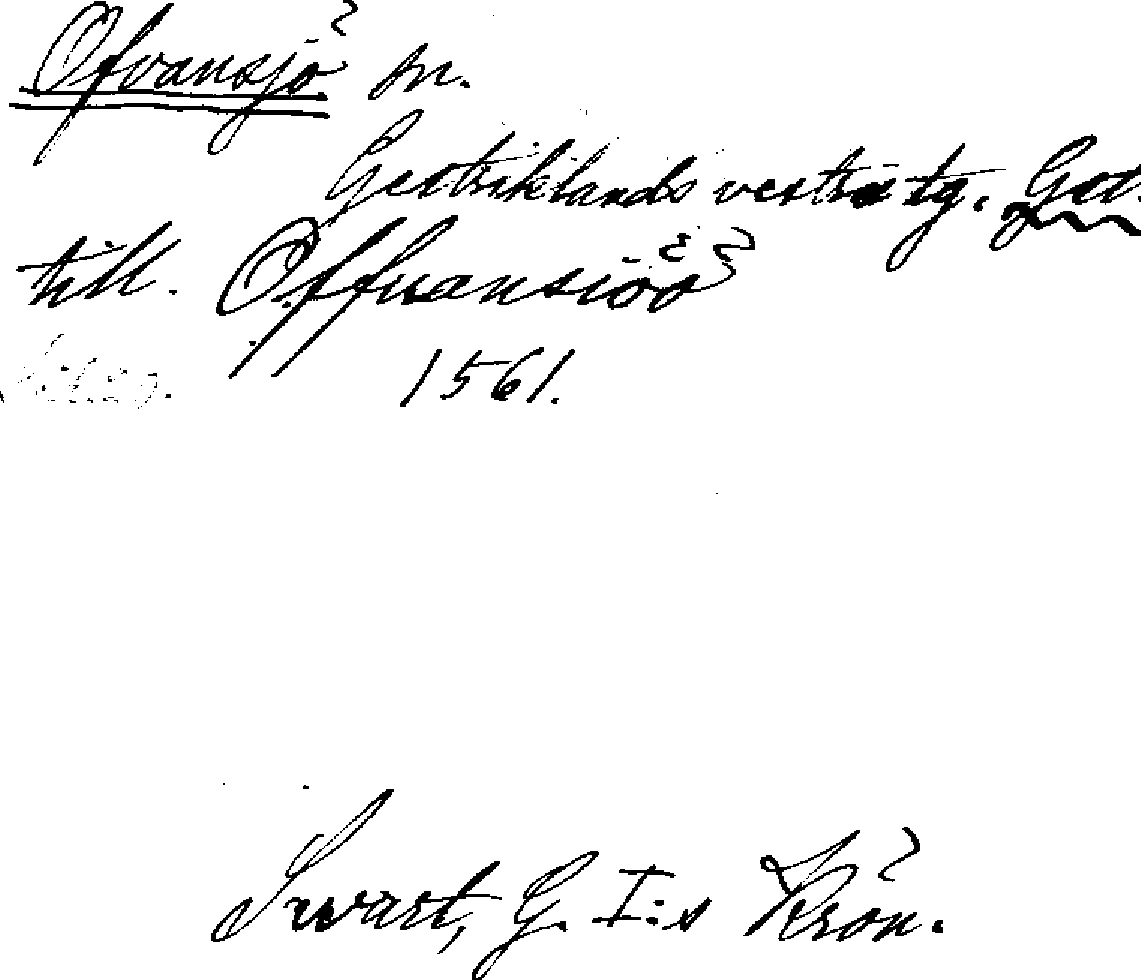 Ofvansjö sn.
Gestriklands vestra tg.
till. Offuansiöö
1561.
Swart, G. I:s Krön.